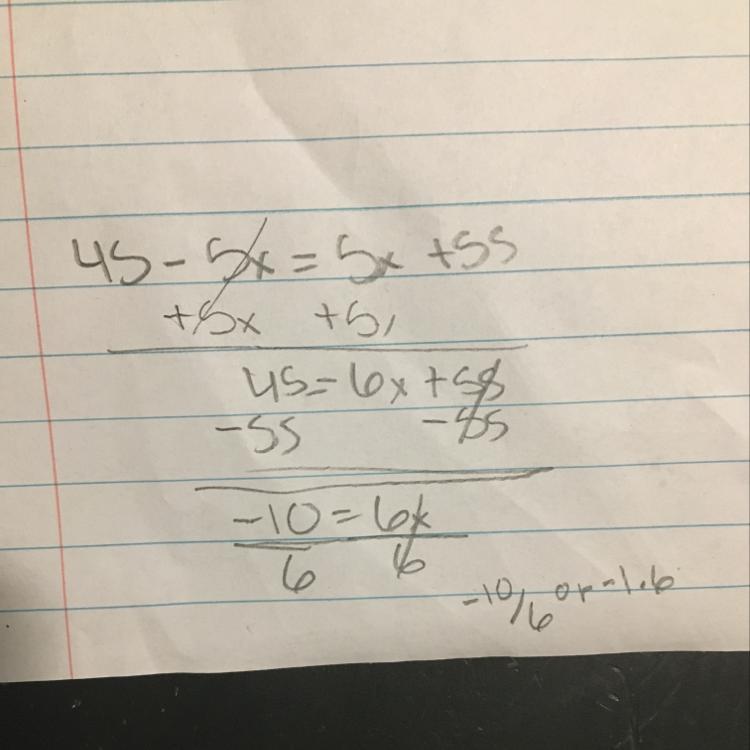 45 - 5x = 5x + 55
+5x +5
45 = 6x + 55
-55 -55
-10 = 6x
6 6
-10/6 or -1.6